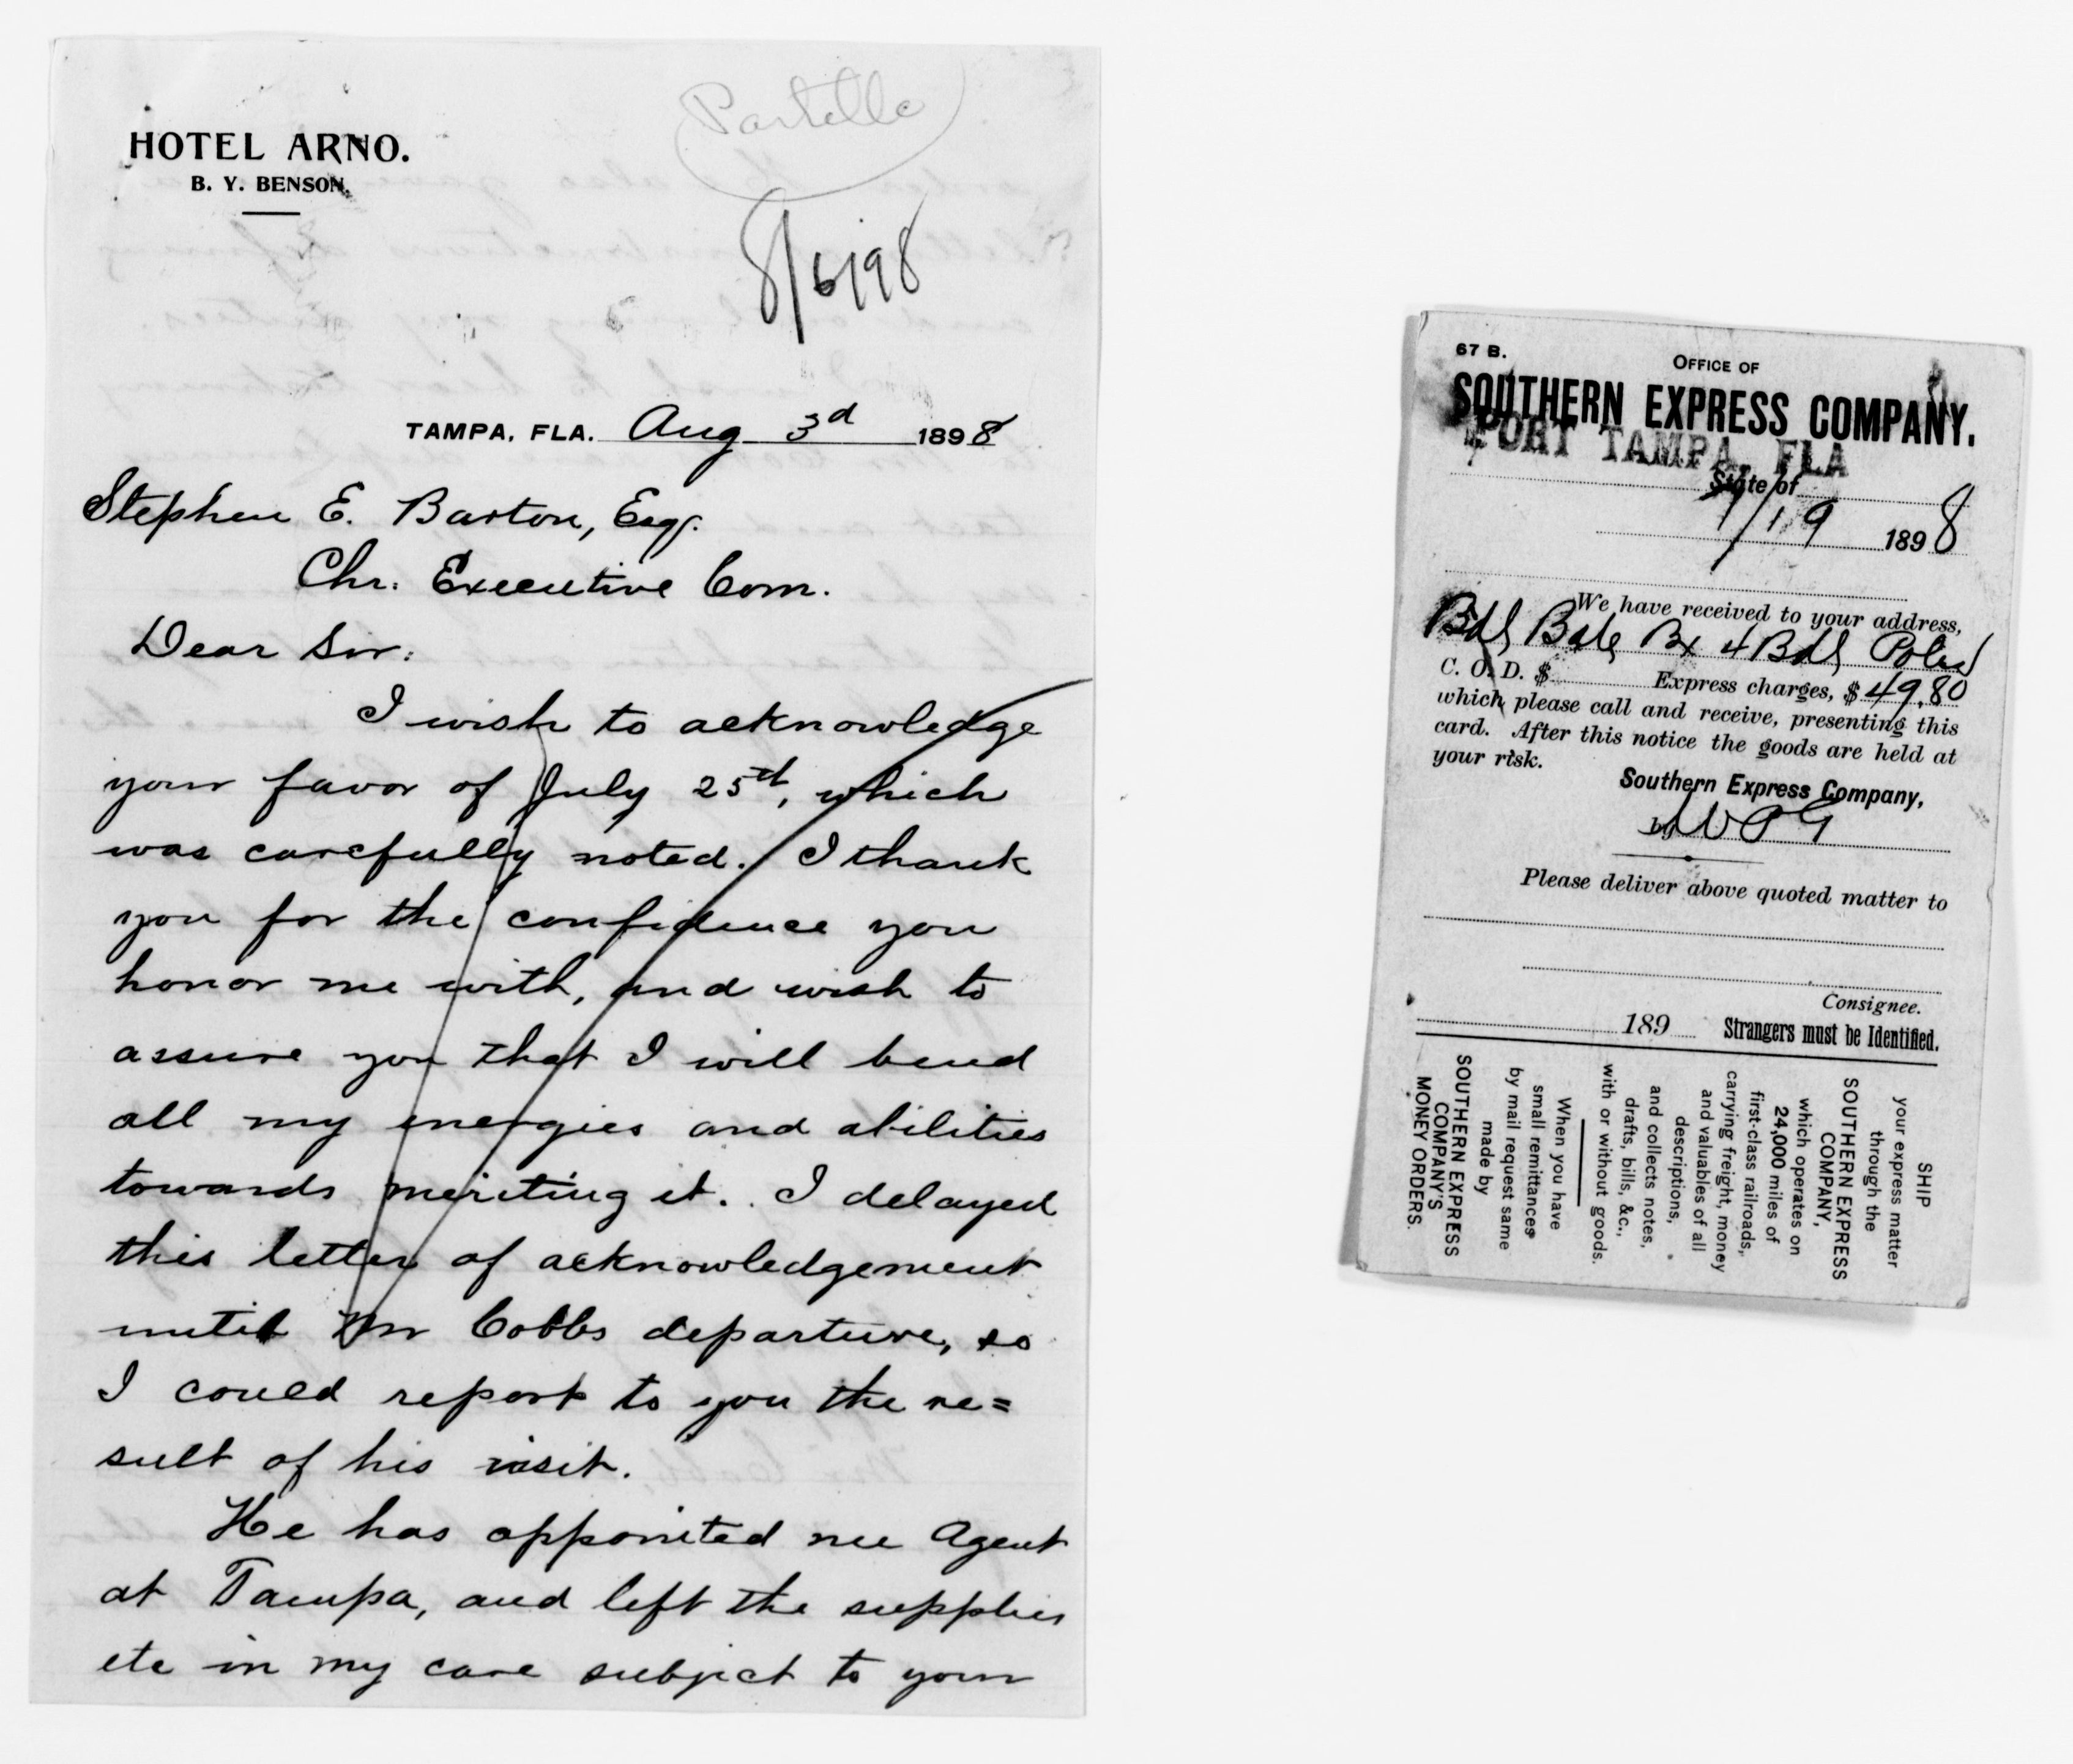 Partello
HOTEL ARNO.
B. Y. BENSON.
8/6/98
TAMPA, FLA. Aug 3d 1898
Stephen E. Barton, Esq.
Chr. Executive Com.
Dear Sir:
I wish to acknowledge
your favor of July 25th, which
was carefully noted. I thank
you for the confidence you
honor me with, and wish to
assure you that I will bend
all my energies and abilities
towards meriting it. I delayed
this letter of acknowledgement
until Mr Cobbs departure, so
I could report to you the re=
sult of his visit.
He has appointed me Agent
at Tampa, and left the supplies
etc in my care subject to your
67 B.
OFFICE OF
SOUTHERN EXPRESS COMPANY.
PORT TAMPA, FLA
State of
7/19 1898
We have received to your address,
Bdl Bale Bx 4 Bdl Poles
C. O. D. $ Express charges, $ 49.80
which please call and receive, presenting this
card. After this notice the goods are held at
your risk.
Southern Express Company,
by W P G
Please deliver above quoted matter to
Consignee.
189 Strangers must be Identified.
SHIP
your express matter
through the
SOUTHERN EXPRESS
COMPANY,
which operates on
24,000 miles of
first-class railroads,
carrying freight, money
and valuables of all
descriptions,
and collects notes,
drafts, bills, &c.,
with or without goods.
When you have
small remittances
by mail request same
made by
SOUTHERN EXPRESS
COMPANY'S
MONEY ORDERS.